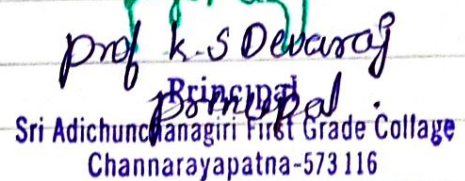 Prof K.S Devaraj
Principal
Principal.
Sri Adichunchanagiri First Grade Collage
Channarayapatna-573 116